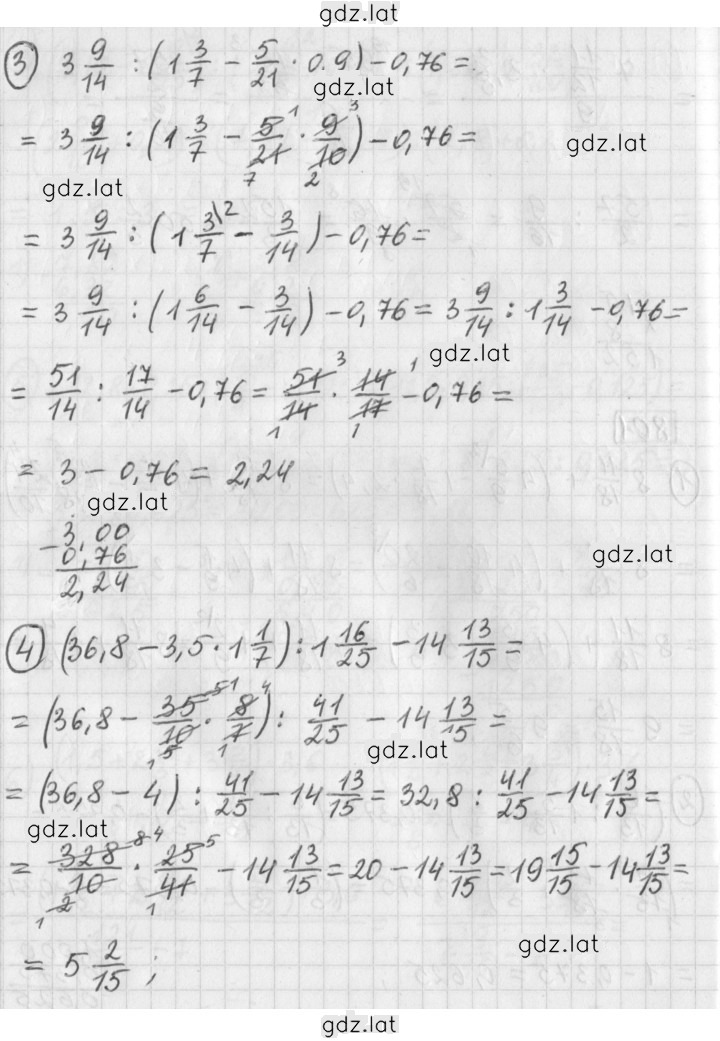 gdz.lat
3) 3 9/14 : (1 3/7 − 5/21 · 0.9) − 0,76 =
gdz.lat
= 3 9/14 : (1 3/7 − 5/21 · 9/10) − 0,76 =
1 3 7 2
gdz.lat
gdz.lat
= 3 9/14 : (1 3\2/7 − 3/14) − 0,76 =
= 3 9/14 : (1 6/14 − 3/14) − 0,76 = 3 9/14 : 1 3/14 − 0,76 =
gdz.lat
= 51/14 : 17/14 − 0,76 = 51/14 · 14/17 − 0,76 =
3 1 1 1
= 3 − 0,76 = 2,24
gdz.lat
− 3,00
0,76
2,24
gdz.lat
4) (36,8 − 3,5 · 1 1/7) : 1 16/25 − 14 13/15 =
= (36,8 − 35/10 · 8/7) : 41/25 − 14 13/15 =
5 1 4 1 5 1
gdz.lat
= (36,8 − 4) : 41/25 − 14 13/15 = 32,8 : 41/25 − 14 13/15 =
gdz.lat
= 328/10 · 25/41 − 14 13/15 = 20 − 14 13/15 = 19 15/15 − 14 13/15 =
8 4 5 1 2 1
gdz.lat
= 5 2/15 ;
gdz.lat